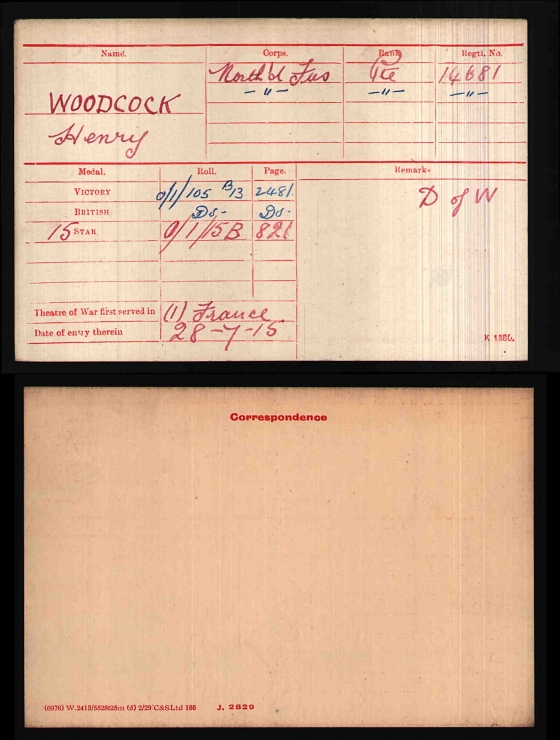 Name. Corps. Rank Regtl. No.
WOODCOCK North'd Fus Pte 14681
Henry — " — — " — — " —
Medal. Roll. Page. Remarks
VICTORY O/1/105 B13 2481. D of W
BRITISH Do- Do-
15 STAR O/1/15B 821
Theatre of War first served in (1) France
Date of entry therein 28-7-15
K 1380.
Correspondence
(6976) W.2413/5528 125m (5) 2/29 C&SLtd 186 J. 2829